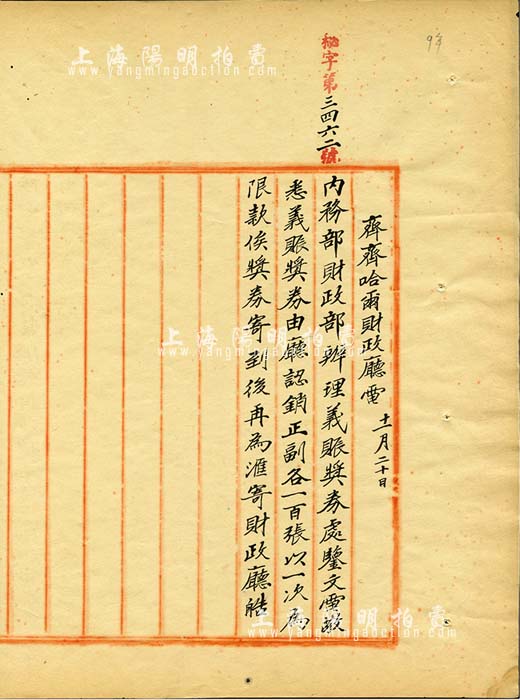 秘字第三四六二號
齊齊哈爾財政廳電 十一月二十日
內務部財政部辦理義賑獎券處鑒文電敬
悉義賑獎券由廳認銷正副各一百張以一次為
限款俟獎券寄到後再為滙寄財政廳皓
上海陽明拍賣
www.yangmingauction.com
上海陽明拍賣
www.yangmingauction.com
上海陽明拍賣
www.yangmingauction.com